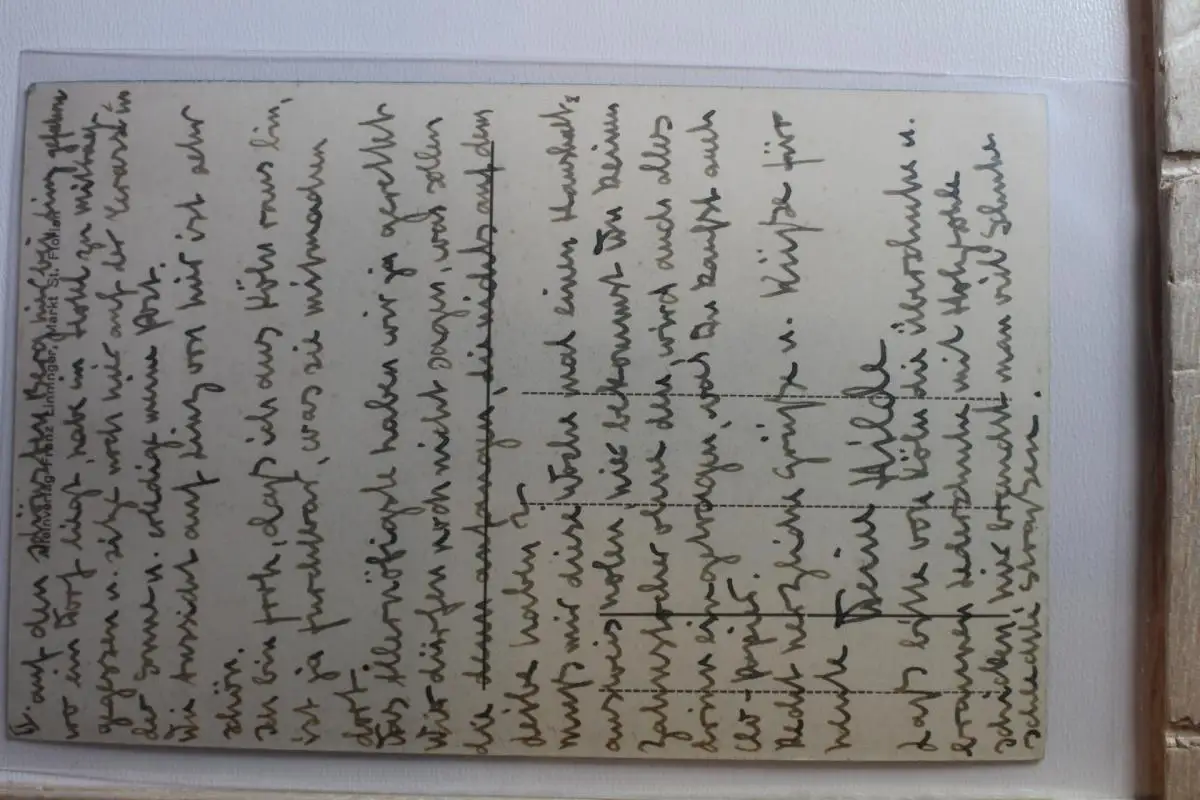 U. auf den schönsten Berg hier bei Linz gefahren
wo ein Dorf liegt, habe im Hotel zu mittag
gegessen u. sitze noch hier auf der Terasse in
der Sonne u. erledige meine Post.
Die Aussicht auf Linz von hier ist sehr
schön.
Ich bin froh, dass ich aus Köln raus bin,
ist ja furchtbar, was sie mitmachen
dort.
Das Allernötigste haben wir ja gerettet
Wir dürfen noch nicht sagen, was sollen
die denn anfangen, die nichts auf dem
Leibe haben?
Muß mir diese Woche mal einen Haushalt-
ausweis holen hier bekommst Du keinen
Zahnstocher ohne den wird auch alles
drinnen eingetragen, was Du kaufst auch
Clo-Papier.
Recht herzliche Grüße u. Küsse für
heute Deine Hilde
Lass bitte von Köln die überschuhe u.
braunen Lederschuhe mit Holzsohle
schicken, hier braucht man viel Schuhe
schlechte Strassen.
Alleinverlag Franz Lininger, Markt St. Florian